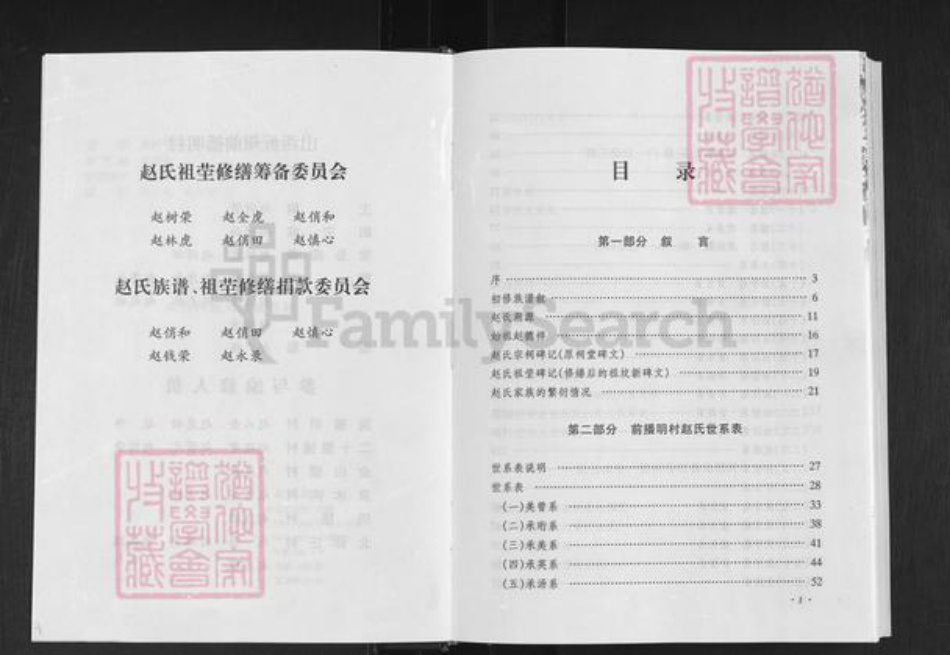 赵氏祖茔修缮筹备委员会
赵树荣 赵全虎 赵俏和
赵林虎 赵俏田 赵慎心
赵氏族谱、祖茔修缮捐款委员会
赵俏和 赵俏田 赵慎心
赵钱荣 赵永录
FamilySearch
犹他家
谱学会
收藏
目 录
第一部分 叙 言
序 3
初修族谱叙 6
赵氏溯源 11
始祖赵德祥 16
赵氏宗祠碑记(原祠堂碑文) 17
赵氏祖茔碑记(修缮后的祖坟新碑文) 19
赵氏家族的繁衍情况 21
第二部分 前播明村赵氏世系表
世系表说明 27
世系表 28
(一)美曾系 33
(二)承珩系 38
(三)承美系 41
(四)承英系 44
(五)承汤系 52
·1·
猶他家
譜學會
收藏